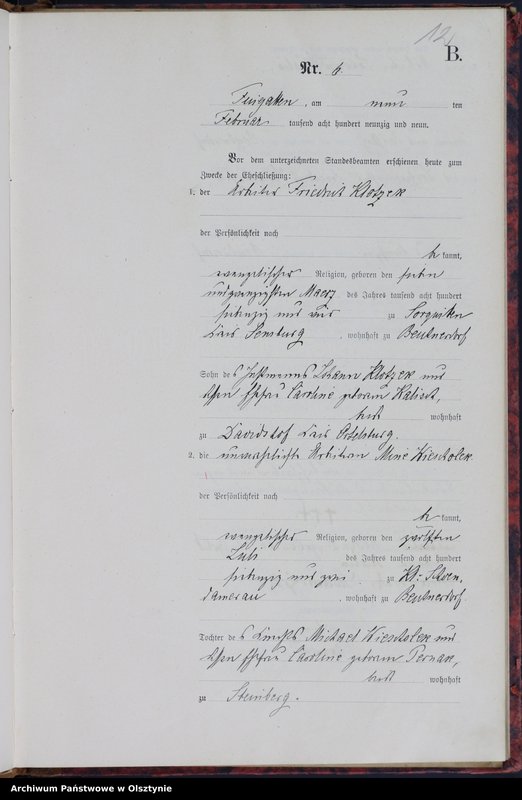 12
B.
Nr. 6
Fiugatten, am neun ten
Februar tausend acht hundert neunzig und neun.
Vor dem unterzeichneten Standesbeamten erschienen heute zum
Zwecke der Eheschließung:
1. der Arbeiter Friedrich Klotzek
der Persönlichkeit nach
be kannt,
evangelischer Religion, geboren den sieben
undzwanzigsten Maerz des Jahres tausend acht hundert
siebenzig und vier zu Sorquitten
Kreis Sensburg, wohnhaft zu Beutnerdorf
Sohn des Instmanns Johann Klotzek und
dessen Ehefrau Caroline geborene
beide wohnhaft
zu Davidshof Kreis Ortelsburg.
2. die unverehelichte Arbeiterin Mine Wiescholek
der Persönlichkeit nach
be kannt,
evangelischer Religion, geboren den zwölften
Juli des Jahres tausend acht hundert
siebenzig und zwei zu Kl: Schoen-
damerau, wohnhaft zu Beutnerdorf.
Tochter des Michael Wiescholek und
dessen Ehefrau Caroline geborene
beide wohnhaft
zu Steinberg.
Archiwum Państwowe w Olsztynie